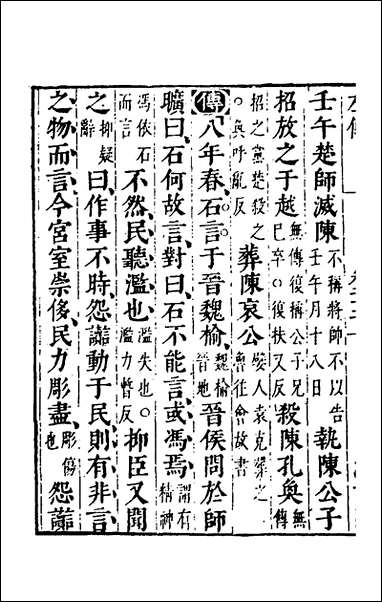 壬午楚師滅陳不稱將師不以告壬午月十八日執陳公子
招放之于越無傳復稱公子兄已卒○復扶又反殺陳孔奐無傳
招之黨楚殺之○奐呼亂反葬陳哀公嬖人袁克葬之魯往會故書
傳八年春石言于晉魏榆魏榆晉地晉侯問於師
曠曰石何故言對曰石不能言或馮焉謂有精神
馮依石而言不然民聽濫也濫失也○濫力暫反抑臣又聞
之抑疑辭曰作事不時怨讟動于民則有非言
之物而言今宮室崇侈民力彫盡彫傷也怨讟